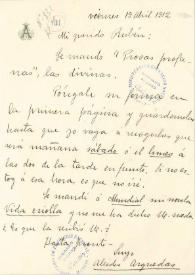 viernes 19 Abril 1912
Mi querido Rubén:
Le mando "Prosas profa-
nas", las divinas.
Póngale mi firma en
la primera página y guárdemelo
hasta que yo vaya a recogerlos que
será mañana sábado ó el lunes á
las dos de la tarde en punto. Si no es-
toy á esa hora, es que no iré.
Le mandé á Mundial mi novela
Vida criolla y no me ha dicho U. nada.
¿Es que la recibió U.?
Hasta pronto.
Suyo
Alcides Arguedas